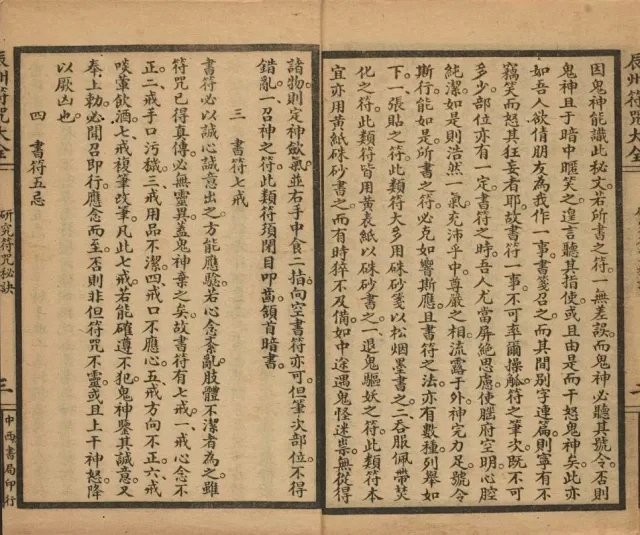 因鬼神能識此秘文。若所書之符。一無差誤。而鬼神必聽其號令。否則
鬼神且于暗中匿笑之。遑言聽其指使。或且由是而干怒鬼神矣。此亦
如吾人欲倩朋友為我作一事。書箋召之。而其間別字連篇。則寧有不
竊笑而怒其狂妄者耶。故書符一事。不可率爾操觚。符之筆次。既不可
多少。部位亦有一定。書符之時。吾人尤當屏絕思慮。使腦府空明。心腔
純潔。如是則浩然一氣。充沛乎中。尊嚴之相。流露于外。神完力足。號令
斯行。能如是。所書之符。必克如響斯應。且書符之法。亦有數種。列舉如
下。一張貼之符。此類符大多用硃砂箋。以松烟墨書之。二吞服佩帶焚
化之符。此類符皆用黃表紙。以硃砂書之。一退鬼驅妖之符。此類符本
宜亦用黃紙硃砂書之。而有時猝不及備。如中途遇鬼怪迷祟。無從得
諸物。則定神歛氣。並右手中食二指。向空書符亦可。但筆次部位。不得
錯亂。一召神之符。此類符須閉目叩齒。頷首暗書。
三　書符七戒
書符必以誠心誠意出之。方能應驗。若心念紊亂。肢體不潔者為之。雖
符咒已得真傳。必無靈異。蓋鬼神棄之矣。故書符有七戒。一戒心念不
正。二戒手口污穢。三戒用品不潔。四戒口不應心。五戒方向不正。六戒
啖葷飲酒。七戒複筆改筆。凡此七戒。若能確遵不犯。鬼神鑒其誠意。又
奉上勅。必聞召即行。應念而至。否則非但符咒不靈。或且上干神怒。降
以厥凶也。
四　書符五忌
辰州符咒大全
研究符咒秘訣
三
中西書局印行